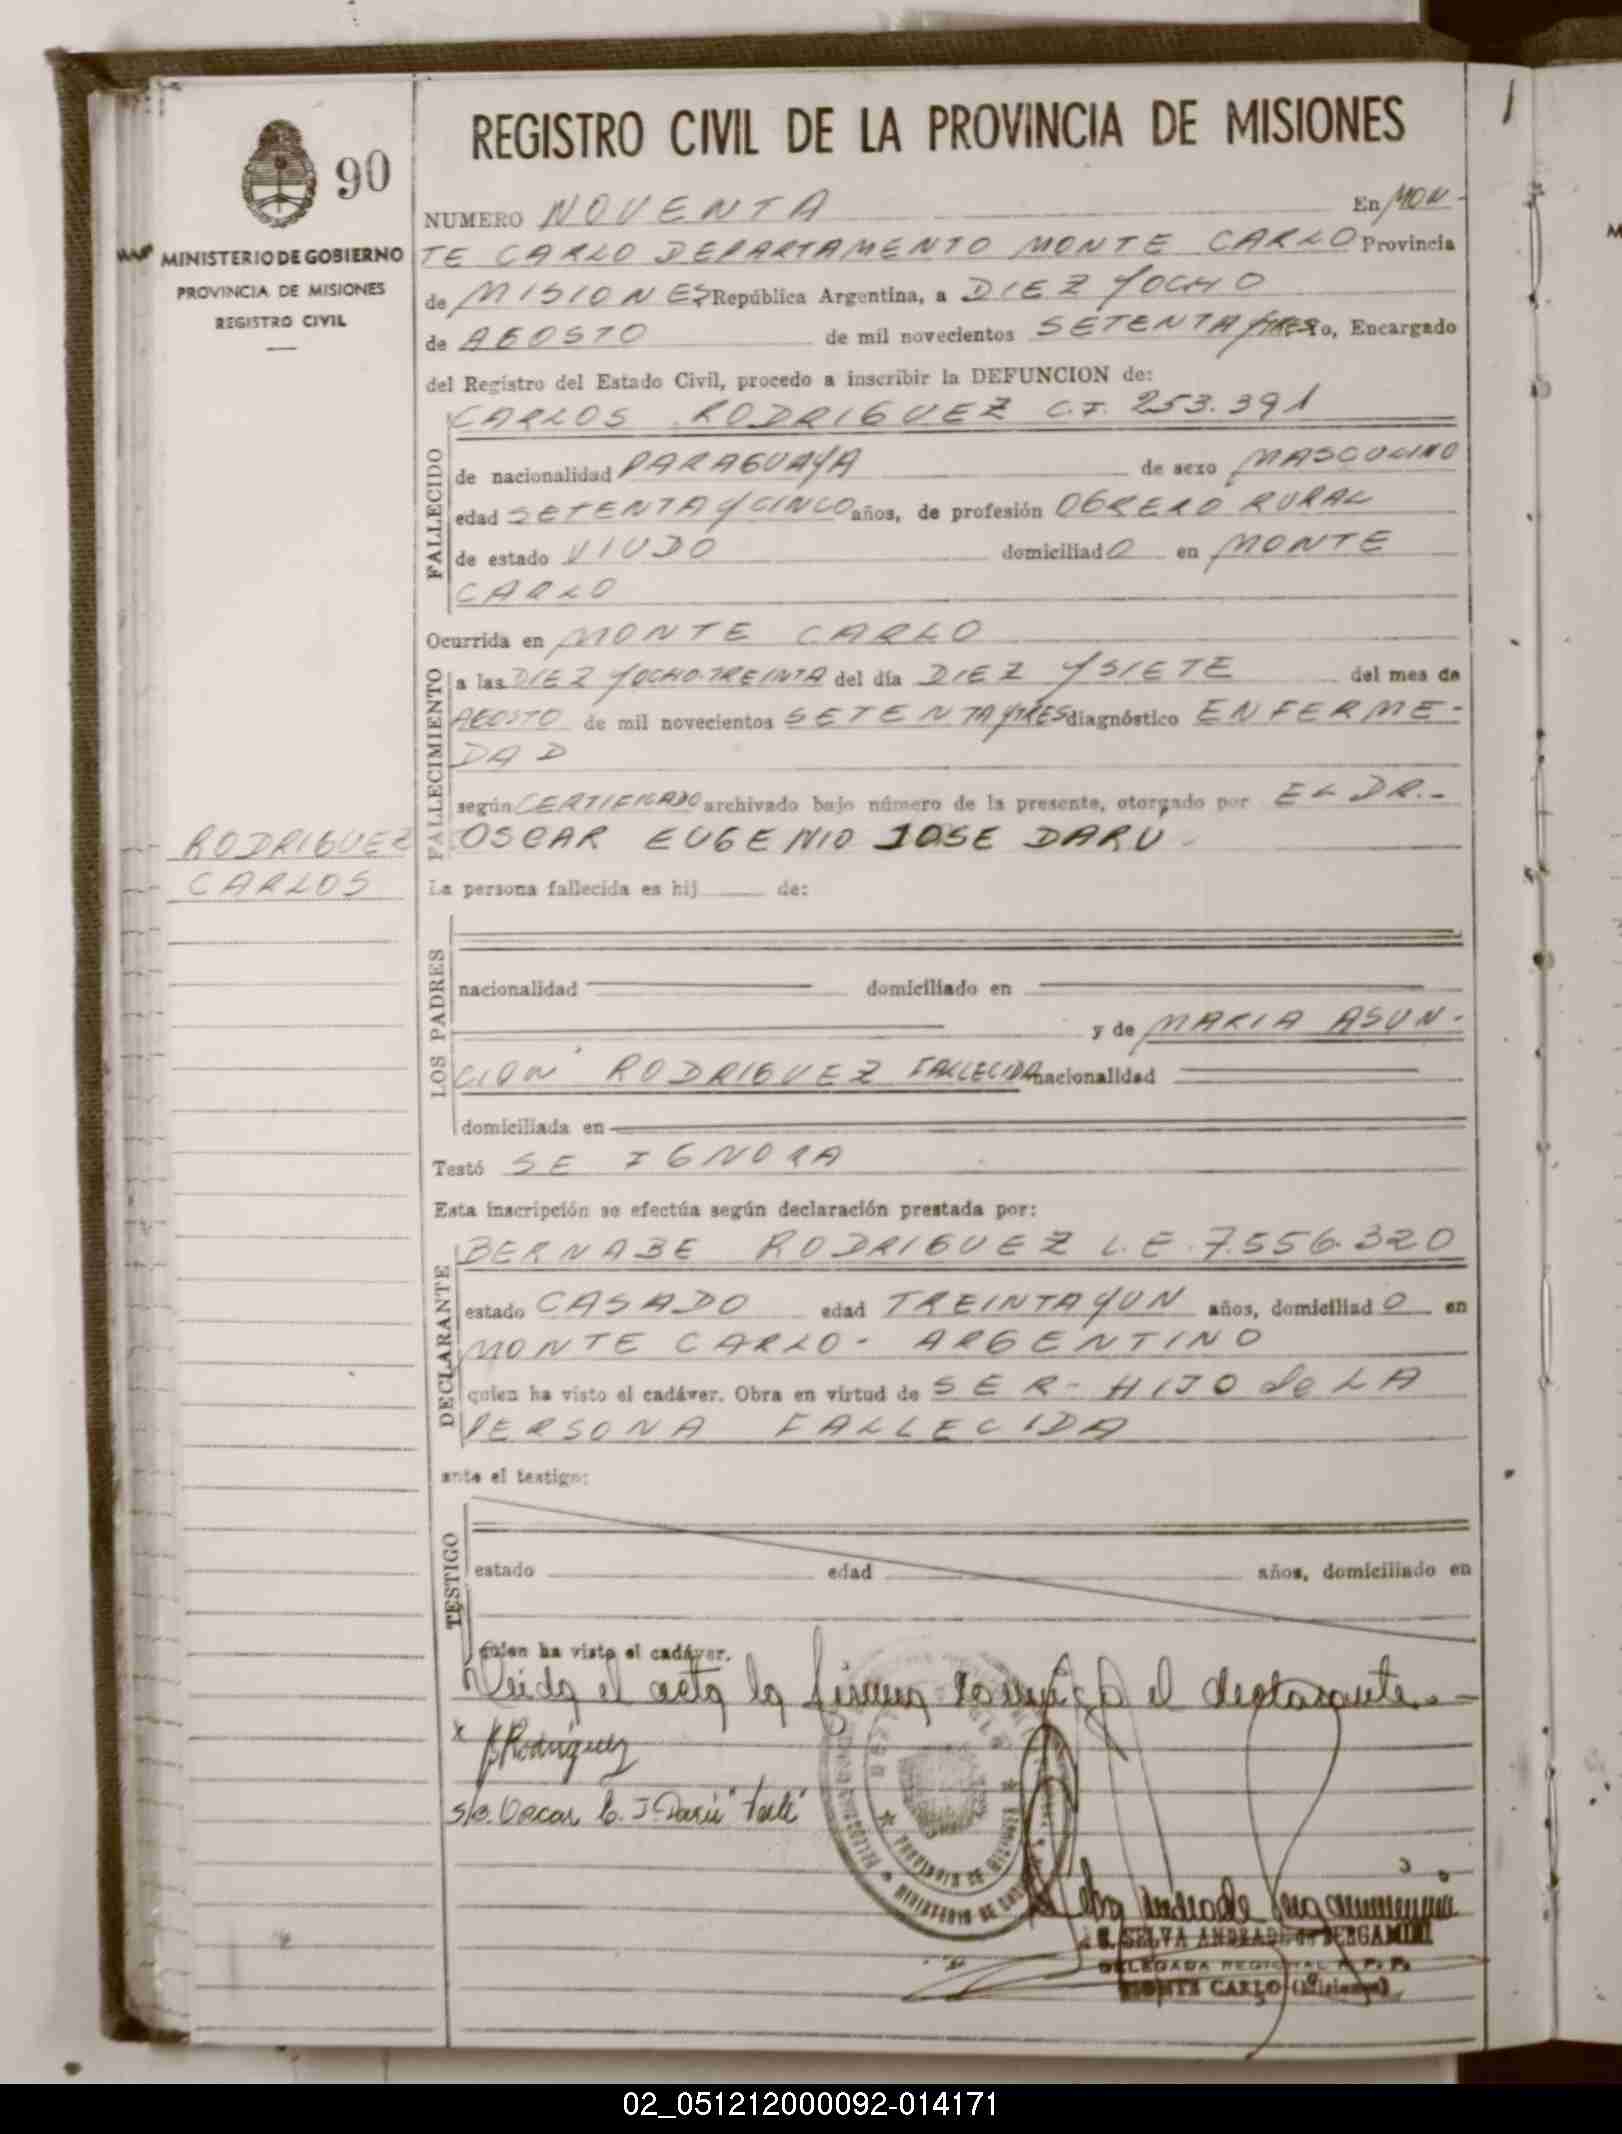 REGISTRO CIVIL DE LA PROVINCIA DE MISIONES
90
MINISTERIO DE GOBIERNO
PROVINCIA DE MISIONES
REGISTRO CIVIL
NUMERO NOVENTA En MON-
TE CARLO DEPARTAMENTO MONTE CARLO Provincia
de MISIONES República Argentina, a DIEZ Y OCHO
de AGOSTO de mil novecientos SETENTA Y TRES Yo, Encargado
del Registro del Estado Civil, procedo a inscribir la DEFUNCION de:
CARLOS RODRIGUEZ C.I. 253.391
FALLECIDO
de nacionalidad PARAGUAYA de sexo MASCULINO
edad SETENTA Y CINCO años, de profesión OBRERO RURAL
de estado VIUDO domiciliado en MONTE
CARLO
Ocurrida en MONTE CARLO
FALLECIMIENTO
a las DIEZ Y OCHO TREINTA del día DIEZ Y SIETE del mes de
AGOSTO de mil novecientos SETENTA Y TRES diagnóstico ENFERME-
DAD
según CERTIFICADO archivado bajo número de la presente, otorgado por EL DR.-
OSCAR EUGENIO JOSE DARU -
RODRIGUEZ
CARLOS
La persona fallecida es hij de:
LOS PADRES
nacionalidad domiciliado en
y de MARIA ASUN-
CION RODRIGUEZ FALLECIDA nacionalidad
domiciliada en
Testó SE IGNORA
Esta inscripción se efectúa según declaración prestada por:
BERNABE RODRIGUEZ L.E. 7.556.320
DECLARANTE
estado CASADO edad TREINTA Y UN años, domiciliado en
MONTE CARLO - ARGENTINO
quien ha visto el cadáver. Obra en virtud de SER - HIJO de LA
PERSONA FALLECIDA
ante el testigo:
TESTIGO
estado edad años, domiciliado en
quien ha visto el cadáver.
Leida el acta la firma conmigo el declarante.-
x B Rodriguez
s/b. Oscar E. J. Darú "Vale"
PROVINCIA DE MISIONES
MINISTERIO DE
S. SELVA ANDRADE de BERGAMINI
DELEGADA REGIONAL R. P. P.
MONTE CARLO (Misiones)
02_051212000092-014171